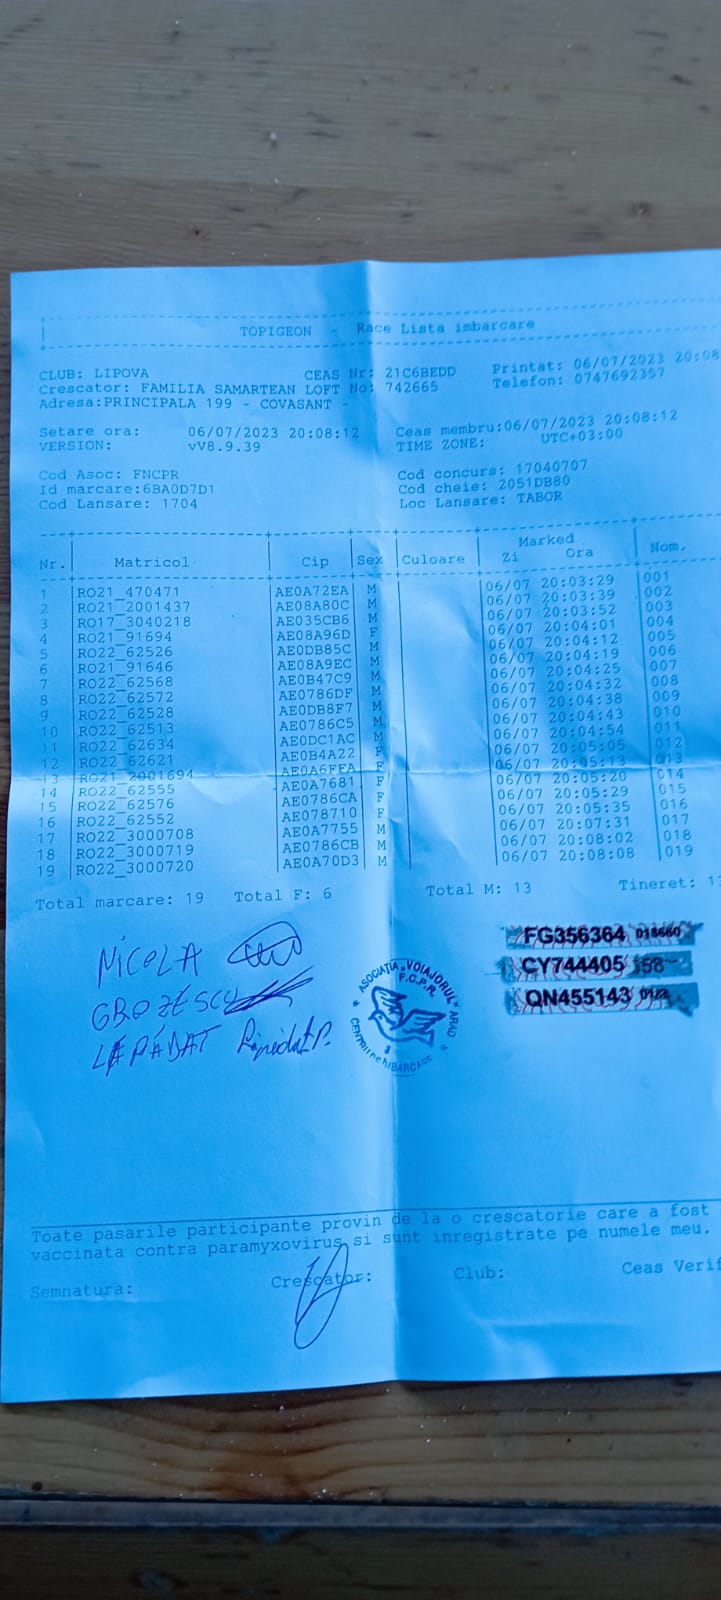 TOPIGEON - Race Lista imbarcare
CLUB: LIPOVA CEAS Nr: 21C6BEDD Printat: 06/07/2023 20:08
Crescator: FAMILIA SAMARTEAN LOFT No: 742665 Telefon: 0747692357
Adresa:PRINCIPALA 199 - COVASANT -
Setare ora: 06/07/2023 20:08:12 Ceas membru:06/07/2023 20:08:12
VERSION: vV8.9.39 TIME ZONE: UTC+03:00
Cod Asoc: FNCPR Cod concurs: 17040707
Id marcare:6BA0D7D1 Cod cheie: 2051DB80
Cod Lansare: 1704 Loc Lansare: TABOR
Marked
Nr. Matricol Cip Sex Culoare Zi Ora Nom.
1 RO21_470471 AE0A72EA M 06/07 20:03:29 001
2 RO21_2001437 AE08A80C M 06/07 20:03:39 002
3 RO17_3040218 AE035CB6 M 06/07 20:03:52 003
4 RO21_91694 AE08A96D F 06/07 20:04:01 004
5 RO22_62526 AE0DB85C M 06/07 20:04:12 005
6 RO21_91646 AE08A9EC M 06/07 20:04:19 006
7 RO22_62568 AE0B47C9 M 06/07 20:04:25 007
8 RO22_62572 AE0786DF M 06/07 20:04:32 008
9 RO22_62528 AE0DB8F7 M 06/07 20:04:38 009
10 RO22_62513 AE0786C5 M 06/07 20:04:43 010
11 RO22_62634 AE0DC1AC M 06/07 20:04:54 011
12 RO22_62621 AE0B4A22 F 06/07 20:05:05 012
13 RO21_2001694 AE0A6FEA F 06/07 20:05:13 013
14 RO22_62555 AE0A7681 F 06/07 20:05:20 014
15 RO22_62576 AE0786CA F 06/07 20:05:29 015
16 RO22_62552 AE078710 F 06/07 20:05:35 016
17 RO22_3000708 AE0A7755 M 06/07 20:07:31 017
18 RO22_3000719 AE0786CB M 06/07 20:08:02 018
19 RO22_3000720 AE0A70D3 M 06/07 20:08:08 019
Total marcare: 19 Total F: 6 Total M: 13 Tineret:
NICOLA
GROZESCU
LEPĂDAT
ASOCIAȚIA „VOIAJORUL" ARAD
F.C.P.R.
CENTRU DE IMBARCARE
FG356364 018660
CY744405
QN455143
Toate pasarile participante provin de la o crescatorie care a fost
vaccinata contra paramyxovirus si sunt inregistrate pe numele meu.
Semnatura: Crescator: Club: Ceas Verif